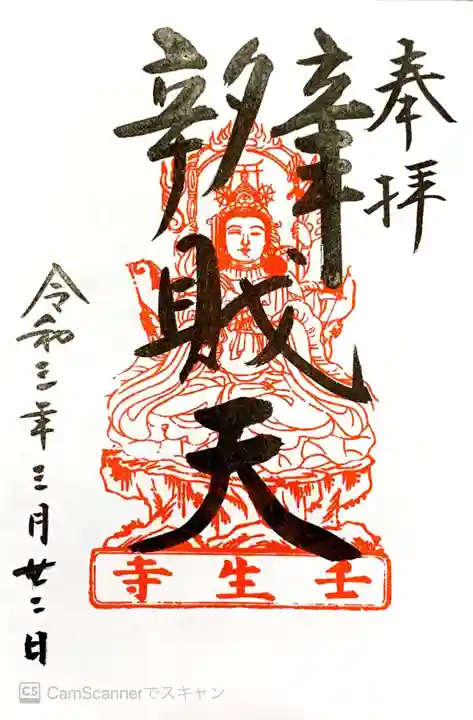 奉拝
辨財天
壬生寺
令和三年三月廿二日
CS CamScannerでスキャン